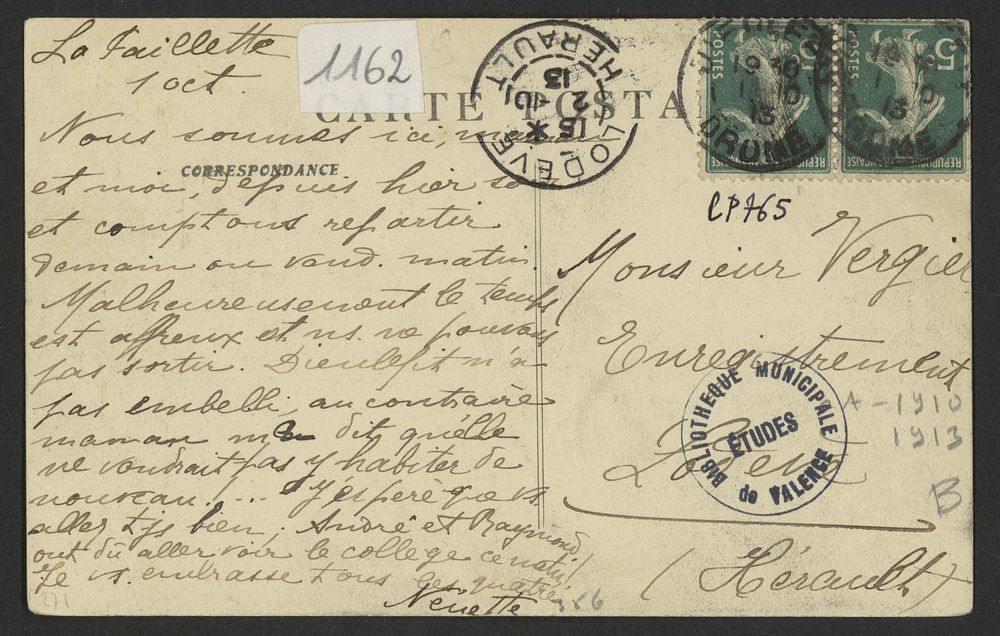 La Faillette
1 oct.
1162
CARTE POSTALE
CORRESPONDANCE
Nous sommes ici, maman
et moi, depuis hier so
et comptons repartir
demain ou vend. matin.
Malheureusement le temps
est affreux et ns. ne pouvons
pas sortir. Dieulefit n'a
pas embelli, au contraire
maman me dit qu'elle
ne voudrait pas y habiter de
nouveau!... J'espère que vs
allez tjs bien; André et Raymond
ont dû aller voir le collège ce matin!
Je vs. embrasse tous les quatre
Nénette
271
LODEVE
HERAULT
15 *
2
13
DROME
19 30
1 10
13
DROME
5
POSTES
REPUBLIQUE FRANÇAISE
5
POSTES
REPUBLIQUE FRANÇAISE
CP765
Monsieur Vergier
Enregistrement
Lodève
(Hérault)
BIBLIOTHEQUE MUNICIPALE
ÉTUDES
de VALENCE
A-1910
1913
B